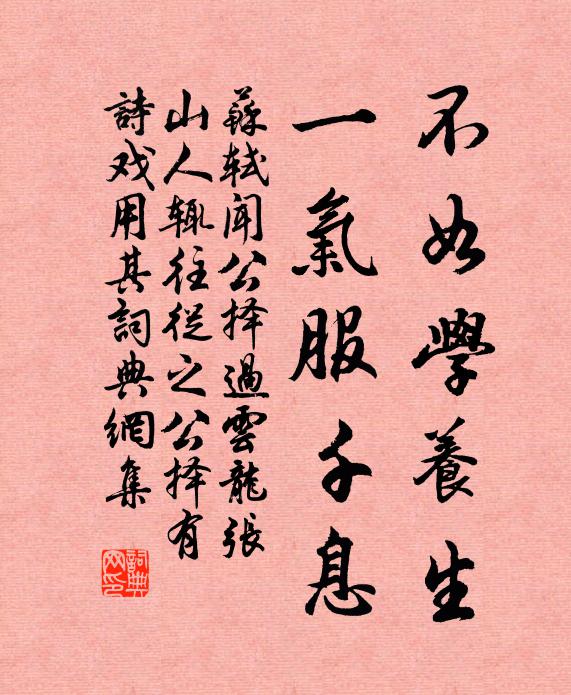 不如學養生
一氣服千息
蘇轼闻公择過雲龍張
山人辄往從之公择有
詩戏用其詞典網集
詞典網印